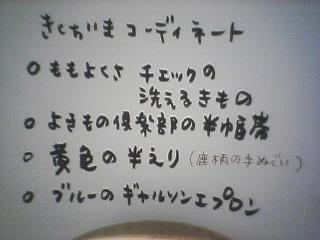 きくちいま コーディネート
○ ももよくさ チェックの
洗えるきもの
○ よきもの倶楽部の半幅帯
○ 黄色の半えり(鹿柄の手ぬぐい)
○ ブルーのギャルソンエプロン